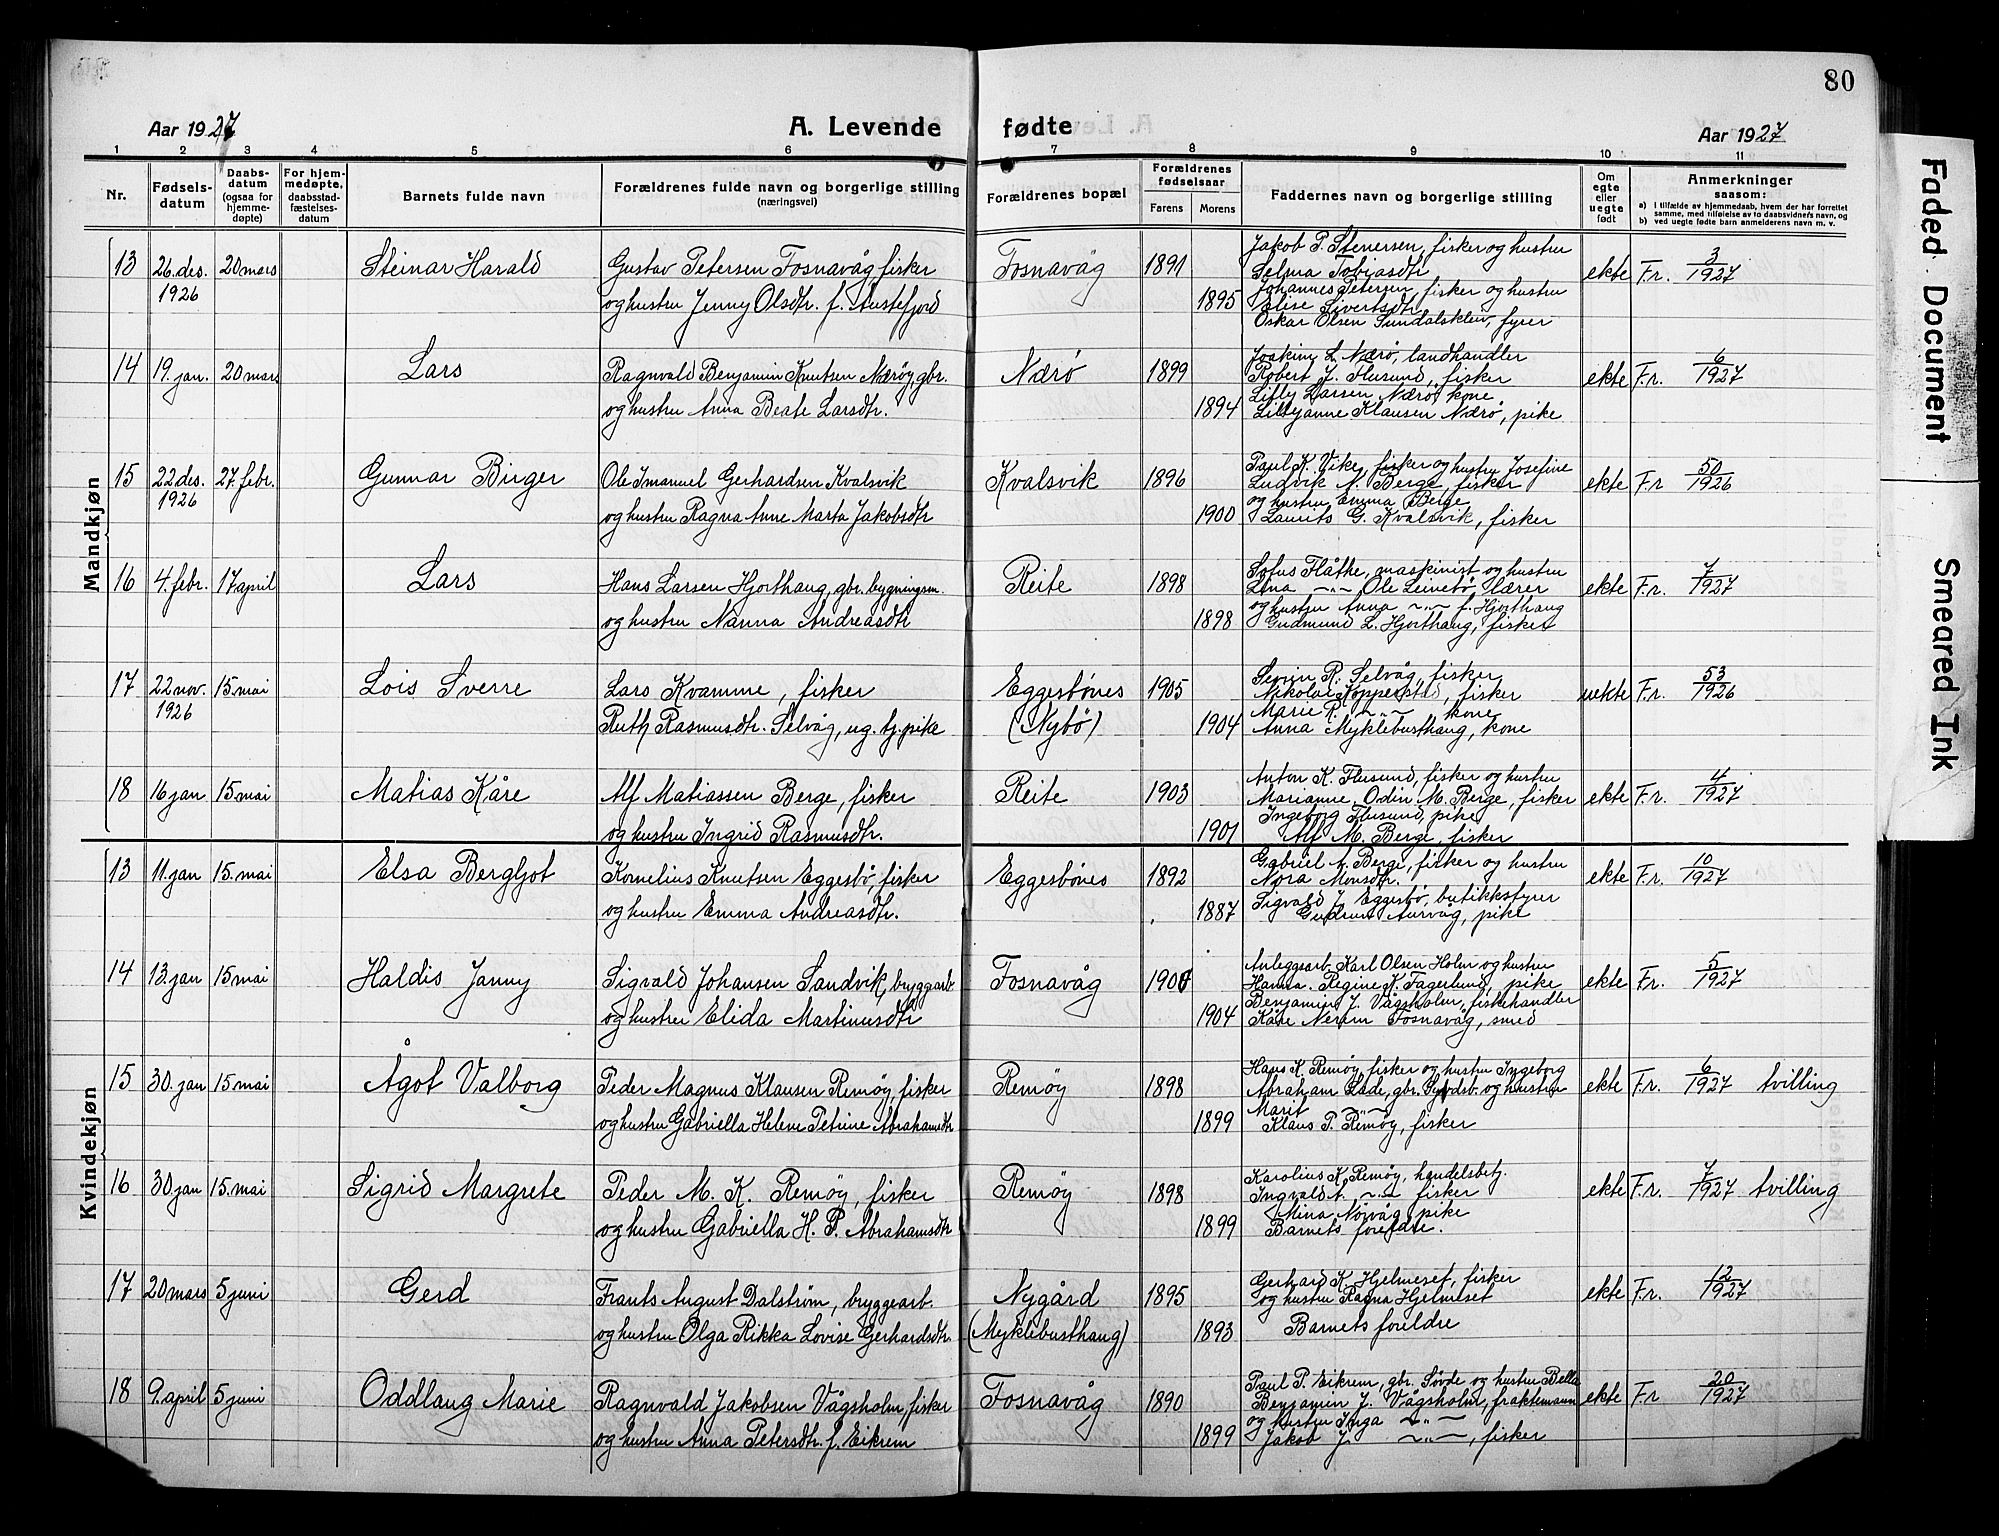 80
Aar 1927
A. Levende
fødte
Aar 1927
1 2 3 4 5 6 7 8 9 10 11
Nr.
Fødsels-
datum
Daabs-
datum
(ogsaa for
hjemme-
døpte)
For hjem-
medøpte,
daabsstad-
fæstelses-
datum
Barnets fulde navn
Forældrenes fulde navn og borgerlige stilling
(næringsvei)
Forældrenes bopæl
Forældrenes
fødselsaar
Farens
Morens
Faddernes navn og borgerlige stilling
Om
egte
eller
uegte
født
Anmerkninger
saasom:
a) I tilfælde av hjemmedaab, hvem der har forrettet
samme, med tilføielse av to daabsvidners navn, og
b) ved uegte fødte barn anmelderens navn m. v.
Mandkjøn
13 26. des. 1926 20 mars Steinar Harald
Gustav Petersen Fosnavåg fisker
og hustru Jenny Olsdtr. f. Austefjord
Fosnavåg 1891 1895
Jakob P. Stenersen, fisker og hustru
Selma Tobiasdtr
Johannes Petersen, fisker og hustru
Elise Sivertsdtr
Oskar Olsen Sundalsklev, fyrer
ekte F.r. 3/1927
14 19. jan. 20 mars Lars
Ragnvald Benjamin Knutsen Nærøy, gbr.
og hustru Anna Beate Larsdtr.
Nærø 1899 1894
Joakim L. Nærø, landhandler
Robert J. Flusund, fisker
Larsen Nærø, kone
Lillyanne Klausen Nærø, pike
ekte F.r. 6/1927
15 22 des. 1926 27. febr. Gunnar Birger
Ole Imanuel Gerhardsen Kvalsvik
og hustru Ragna Anne Marta Jakobsdtr
Kvalsvik 1896 1900
Paul K. Vike, fisker og hustru Josefine
Ludvik N. Berge, fisker
og hustru Emma Berge
Laurits G. Kvalsvik, fisker
ekte F.r 50/1926
16 4. febr. 17 april Lars
Hans Larsen Hjorthaug, gbr. bygningsm.
og hustru Nanna Andreasdtr
Reite 1898 1898
Sofus Flåthe, maskinist og hustru
Lina -"- Ole Leinebø, lærer
og hustru Anna -"- f. Hjorthaug
Gudmund L. Hjorthaug, fisker
ekte F.r. 7/1927
17 22 nov. 1926 15. mai Lois Sverre
Lars Kvamme, fisker
Ruth Rasmusdtr. Selvåg, ug. tj. pike
Eggesbønes
(Nybø)
1905 1904
Sevrin R. Selvåg, fisker
Nikolai Kopperstad, fisker
Marie R. -"- kone
Anna Myklebusthaug, kone
uekte F.r. 53/1926
18 16 jan 15 mai Matias Kåre
Alf Matiassen Berge, fisker
og hustru Ingrid Rasmusdtr.
Reite 1903 1901
Anton K. Flusund, fisker og hustru
Marianne, Odin M. Berge, fisker
Ingeborg Flusund, pike
Alf M. Berge, fisker
ekte F.r. 4/1927
Kvindekjøn
13 11. jan 15. mai Elsa Bergljot
Kornelius Knutsen Eggesbø, fisker
og hustru Emma Andreasdtr.
Eggesbønes 1892 1887
Gabriel A. Berge, fisker og hustru
Nora Monsdtr.
Sigvald J. Eggesbø, butikkstyrer
Gudrun Aurvåg, pike
ekte F.r. 10/1927
14 13. jan 15 mai Haldis Janny
Sigvald Johansen Sandvik, bryggearb.
og hustru Elida Martinusdtr
Fosnavåg 1904
Anleggsarb. Karl Olsen Holm og hustru
Hanna. Regine K. Fagerlund, pike
Benjamin J. Vågsholm, fiskehandler
Kåre Nerem Fosnavåg, smed
ekte F.r. 5/1927
15 30. jan 15 mai Ågot Valborg
Peder Magnus Klausen Remøy, fisker
og hustru Gabriella Helene Petrine Abrahamsdtr
Remøy 1898 1899
Hans K. Remøy, fisker og hustru Ingeborg
Abraham Lade, gbr. og hustru
Marit -"-
Klaus P. Remøy, fisker
ekte F.r. 6/1927 tvilling
16 30. jan 15. mai Sigrid Margrete
Peder M. K. Remøy, fisker
og hustru Gabriella H. P. Abrahamsdtr
Remøy 1898 1899
Karolius K. Remøy, handelsbetj.
Ingvald A. -"- fisker
Mina Norvåg, pike
Barnets foreldre.
ekte F.r. 7/1927 tvilling
17 20 mars 5 juni Gerd
Frants August Dalstrøm, bryggearb.
og hustru Olga Rikka Lovise Gerhardsdtr
Nygård
(Myklebusthaug)
1895 1893
Gerhard K. Hjelmeset, fisker
og hustru Ragna Hjelmeset
Barnets foreldre
ekte F.r. 12/1927
18 9. april 5 juni Oddlaug Marie
Ragnvald Jakobsen Vågsholm, fisker
og hustru Anna Petersdtr. f. Eikrem
Fosnavåg 1890 1899
Paul P. Eikrem, gbr. Søvde og hustru Bella
Benjamin J. Vågsholm, fraktemann
og hustru Inga -"-
Jakob J. -"-, fisker
ekte F.r 20/1927
Faded Document
Smeared Ink